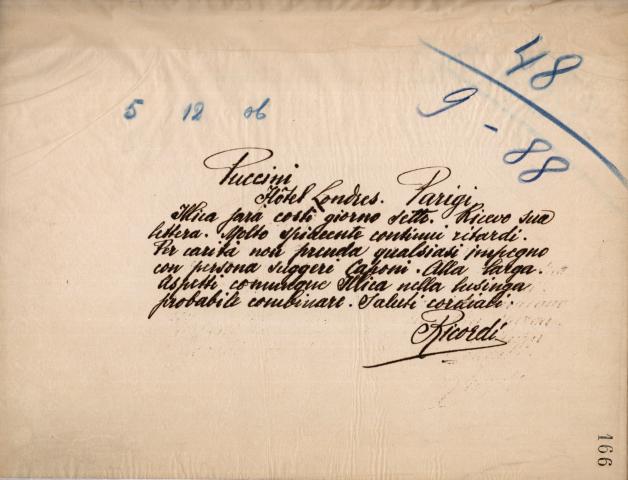 48
9-88
5 12 06
Puccini
Hôtel Londres. Parigi
Illica sarà costì giorno sette. Ricevo sua
lettera. Molto spiacente continui ritardi.
Per carità non prenda qualsiasi impegno
con persona suggere Caponi. Alla larga.
Aspetti comunque Illica nella lusinga
probabile combinare. Saluti cordiali
Ricordi
166